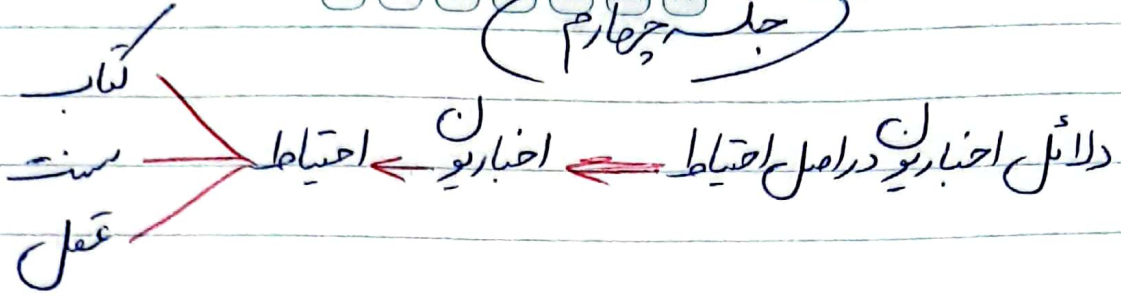 (جلسه چهارم)
دلائل اخباریون در اصل احتیاط ← اخباریون ← احتیاط
کتاب
سنت
عقل